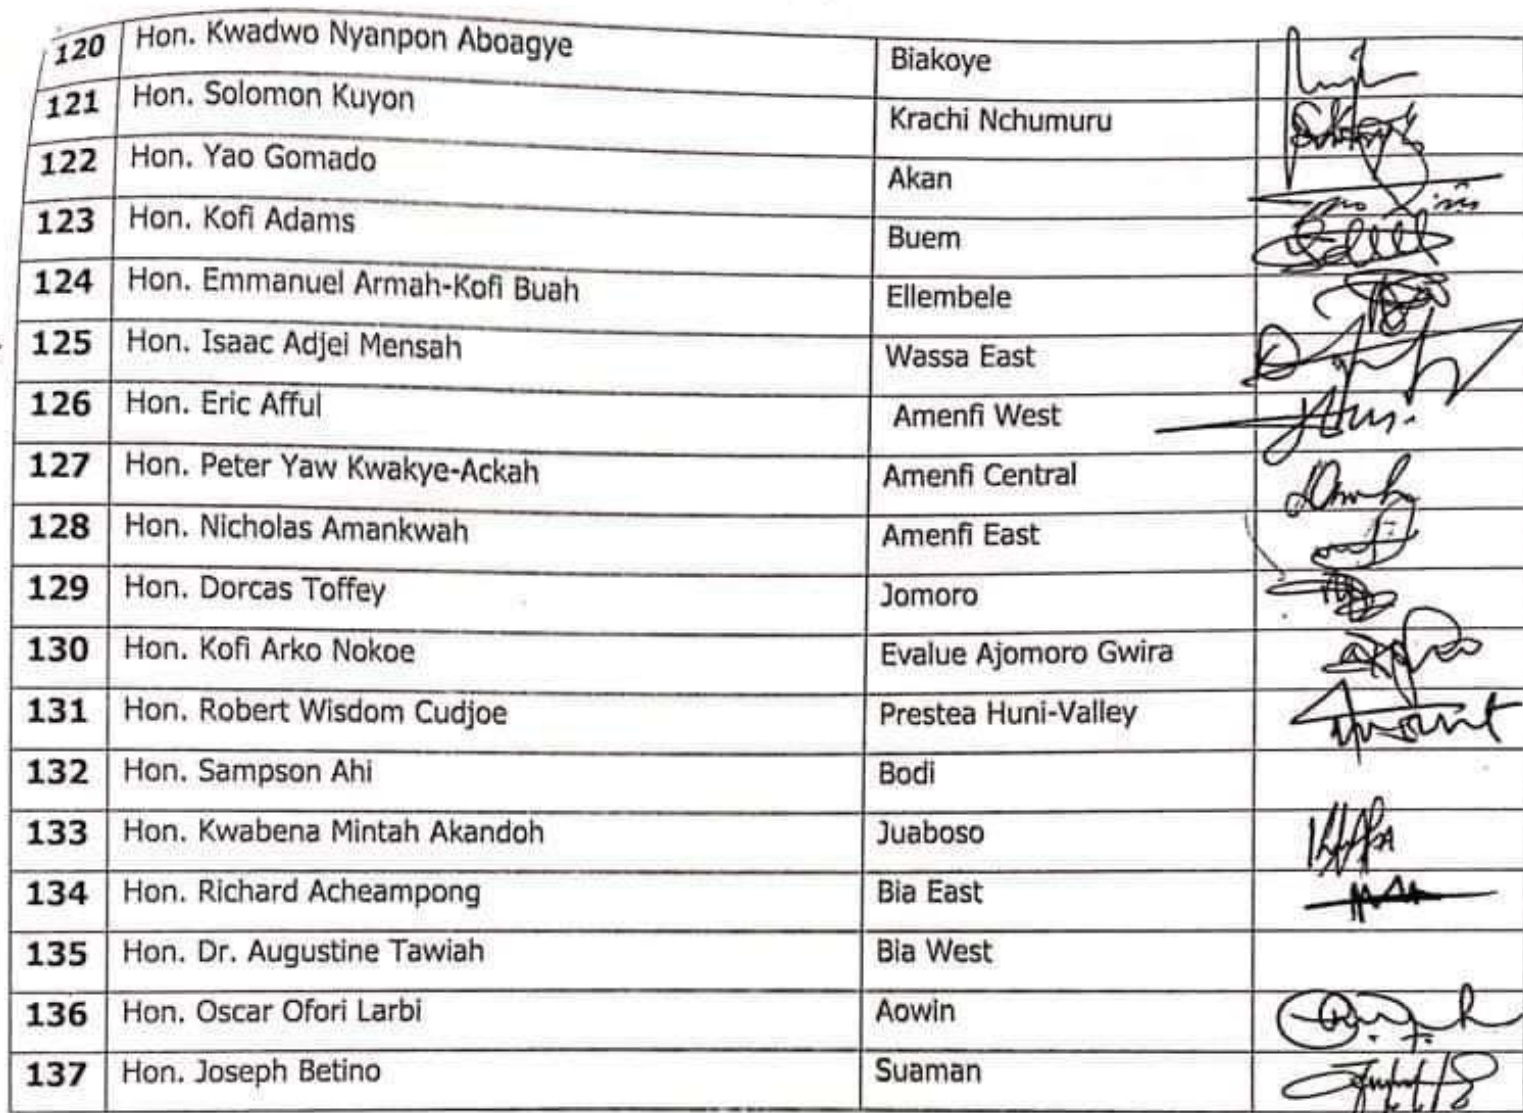 120 Hon. Kwadwo Nyanpon Aboagye Biakoye
121 Hon. Solomon Kuyon Krachi Nchumuru
122 Hon. Yao Gomado Akan
123 Hon. Kofi Adams Buem
124 Hon. Emmanuel Armah-Kofi Buah Ellembele
125 Hon. Isaac Adjei Mensah Wassa East
126 Hon. Eric Afful Amenfi West
127 Hon. Peter Yaw Kwakye-Ackah Amenfi Central
128 Hon. Nicholas Amankwah Amenfi East
129 Hon. Dorcas Toffey Jomoro
130 Hon. Kofi Arko Nokoe Evalue Ajomoro Gwira
131 Hon. Robert Wisdom Cudjoe Prestea Huni-Valley
132 Hon. Sampson Ahi Bodi
133 Hon. Kwabena Mintah Akandoh Juaboso
134 Hon. Richard Acheampong Bia East
135 Hon. Dr. Augustine Tawiah Bia West
136 Hon. Oscar Ofori Larbi Aowin
137 Hon. Joseph Betino Suaman